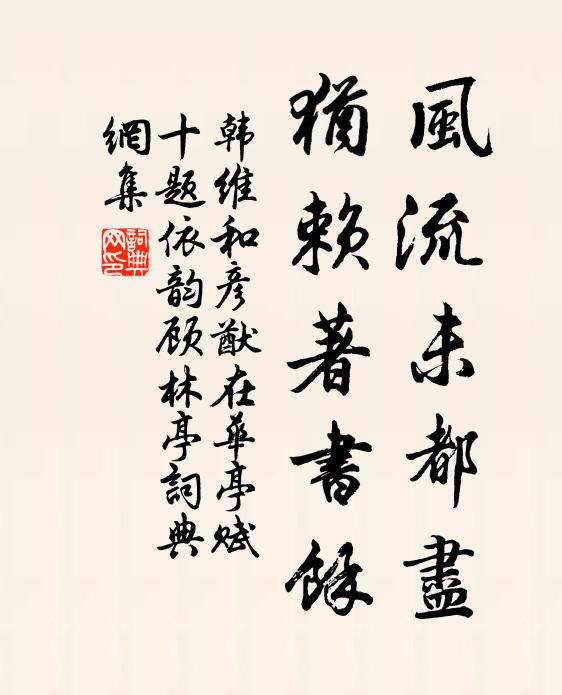 風流未都盡
猶賴著書餘
韩維和彦猷在華亭赋
十题依韵顾林亭詞典
網集
詞典网印